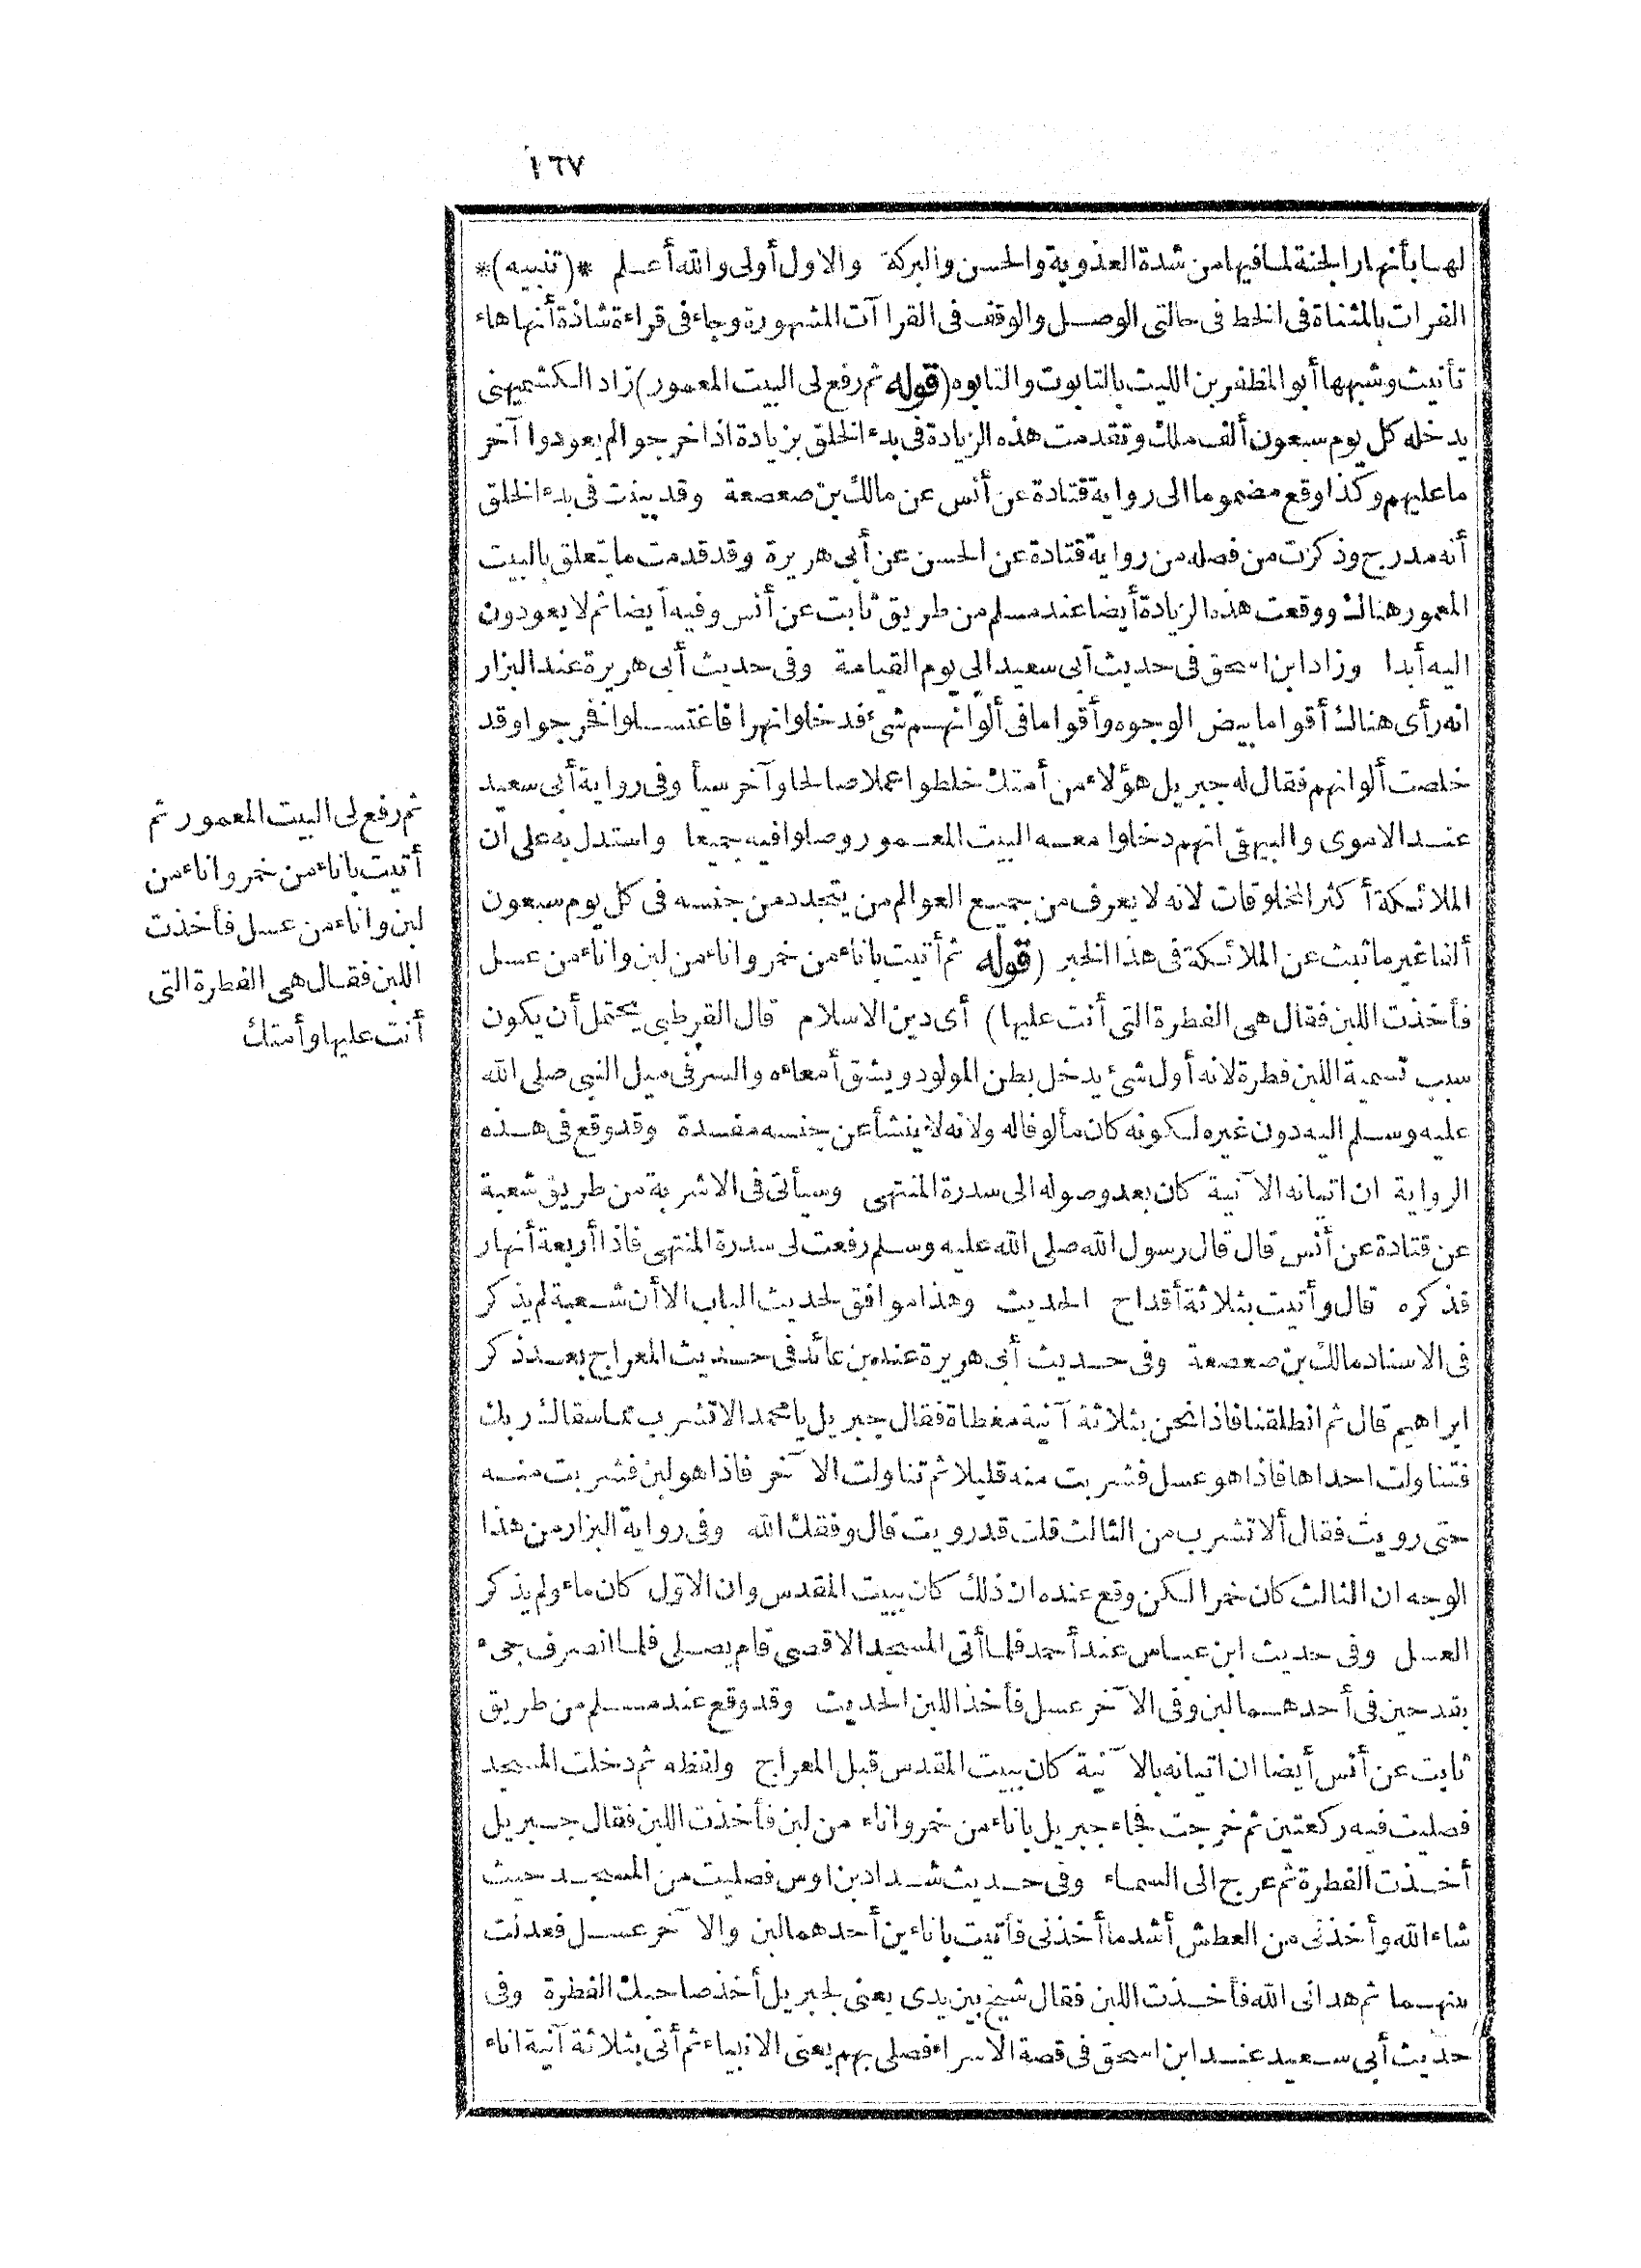 ١٦٧
لها بأنهار الجنة لما فيها من شدة العذوبة والحسن والبركة والاول أولى والله أعلم *(تنبيه)*
الفرات بالمثناة فى الخط فى حالتى الوصل والوقف فى القرا آت المشهورة وجاء فى قراءة شاذة أنها هاء
تأنيث وشبهها أبو المظفر بن الليث بالتابوت والتابوه (قوله ثم رفع لى البيت المعمور) زاد الكشميهنى
يدخله كل يوم سبعون ألف ملك وتقدمت هذه الزيادة فى بدء الخلق بزيادة اذا خرجوا لم يعودوا آخر
ما عليهم وكذا وقع مضموما الى رواية قتادة عن أنس عن مالك بن صعصعة وقد بينت فى بدء الخلق
أنه مدرج وذكرت من فصله من رواية قتادة عن الحسن عن أبى هريرة وقد قدمت ما يتعلق بالبيت
المعمور هناك ووقعت هذه الزيادة أيضا عند مسلم من طريق ثابت عن أنس وفيه أيضا ثم لا يعودون
اليه أبدا وزاد ابن اسحق فى حديث أبى سعيد الى يوم القيامة وفى حديث أبى هريرة عند البزار
انه رأى هناك أقواما بيض الوجوه وأقواما فى ألوانهم شئ فدخلوا نهرا فاغتسلوا فخرجوا وقد
خلصت ألوانهم فقال له جبريل هؤلاء من أمتك خلطوا عملا صالحا وآخر سيأ وفى رواية أبى سعيد
عند الاموى والبيهقى انهم دخلوا معه البيت المعمور وصلوا فيه جميعا واستدل به على ان
الملائكة أكثر المخلوقات لانه لا يعرف من جميع العوالم من يتجدد من جنسه فى كل يوم سبعون
ألفا غير ما ثبت عن الملائكة فى هذا الخبر (قوله ثم أتيت باناء من خمر واناء من لبن واناء من عسل
فأخذت اللبن فقال هى الفطرة التى أنت عليها) أى دين الاسلام قال القرطبى يحتمل أن يكون
سبب تسمية اللبن فطرة لانه أول شئ يدخل بطن المولود ويشق أمعاءه والسر فى ميل النبى صلى الله
عليه وسلم اليه دون غيره لكونه كان مألوفا له ولانه لا ينشأ عن جنسه مفسدة وقد وقع فى هذه
الرواية ان اتيانه الآنية كان بعد وصوله الى سدرة المنتهى وسيأتى فى الاشربة من طريق شعبة
عن قتادة عن أنس قال قال رسول الله صلى الله عليه وسلم رفعت لى سدرة المنتهى فاذا أربعة أنهار
فذكره قال وأتيت بثلاثة أقداح الحديث وهذا موافق لحديث الباب الا أن شعبة لم يذكر
فى الاسناد مالك بن صعصعة وفى حديث أبى هريرة عند بن عائذ فى حديث المعراج بعد ذكر
ابراهيم قال ثم انطلقنا فاذا نحن بثلاثة آنية مغطاة فقال جبريل يا محمد الا تشرب مما سقاك ربك
فتناولت احداها فاذا هو عسل فشربت منه قليلا ثم تناولت الآخر فاذا هو لبن فشربت منه
حتى رويت فقال ألا تشرب من الثالث قلت قد رويت قال وفقك الله وفى رواية البزار من هذا
الوجه ان الثالث كان خمرا لكن وقع عنده ان ذلك كان ببيت المقدس وان الاول كان ماء ولم يذكر
العسل وفى حديث ابن عباس عند أحمد فلما أتى المسجد الاقصى قام يصلى فلما انصرف جىء
بقدحين فى أحدهما لبن وفى الآخر عسل فأخذ اللبن الحديث وقد وقع عند مسلم من طريق
ثابت عن أنس أيضا ان اتيانه بالآنية كان ببيت المقدس قبل المعراج ولفظه ثم دخلت المسجد
فصليت فيه ركعتين ثم خرجت فجاء جبريل باناء من خمر واناء من لبن فأخذت اللبن فقال جبريل
أخذت الفطرة ثم عرج الى السماء وفى حديث شداد بن اوس فصليت من المسجد حيث
شاء الله وأخذنى من العطش أشد ما أخذنى فأتيت باناءين أحدهما لبن والآخر عسل فعدلت
بينهما ثم هدانى الله فأخذت اللبن فقال شيخ بين يدى يعنى لجبريل أخذ صاحبك الفطرة وفى
حديث أبى سعيد عند ابن اسحق فى قصة الاسراء فصلى بهم يعنى الانبياء ثم أتى بثلاثة آنية اناء
ثم رفع لى البيت المعمور ثم
أتيت باناء من خمر واناء من
لبن واناء من عسل فأخذت
اللبن فقال هى الفطرة التى
أنت عليها وأمتك